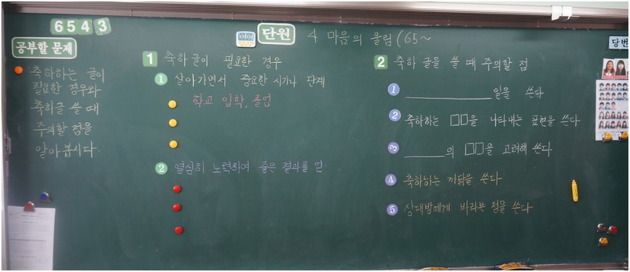 6 5 4 3
단원 4 마음의 울림 (65~
당번
공부할 문제
축하하는 글이
필요한 경우와
축하글 쓸 때
주의할 점을
알아봅시다.
1 축하글이 필요한 경우
1 살아가면서 중요한 시기나 단계
학교 입학, 졸업
2 열심히 노력하여 좋은 결과를 얻
2 축하 글을 쓸 때 주의할 점
1 ________ 일을 쓴다
2 축하하는 □□을 나타내는 표현을 쓴다
3 ____의 □□을 고려해 쓴다
4 축하하는 까닭을 쓴다
5 상대방에게 바라는 점을 쓴다